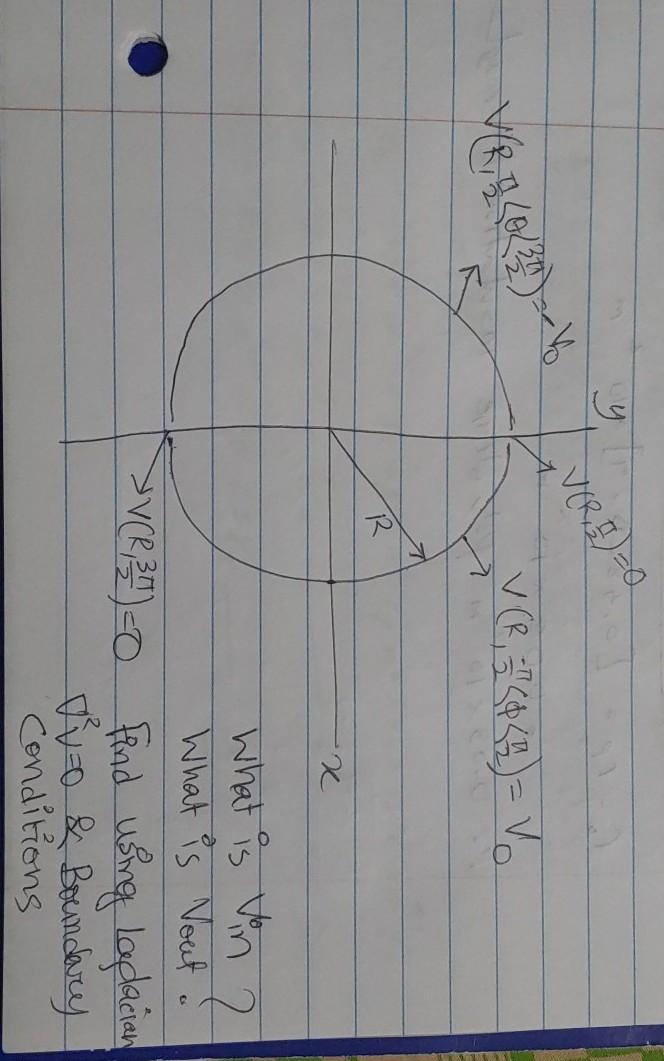 y
V(R, π/2 < θ < 3π/2) = -V₀
V(R, π/2) = 0
V(R, -π/2 < ϕ < π/2) = V₀
R
x
V(R, 3π/2) = 0
What is Vin ?
What is Vout.
find using Laplacian
∇²v=0 & Boundary
Conditions